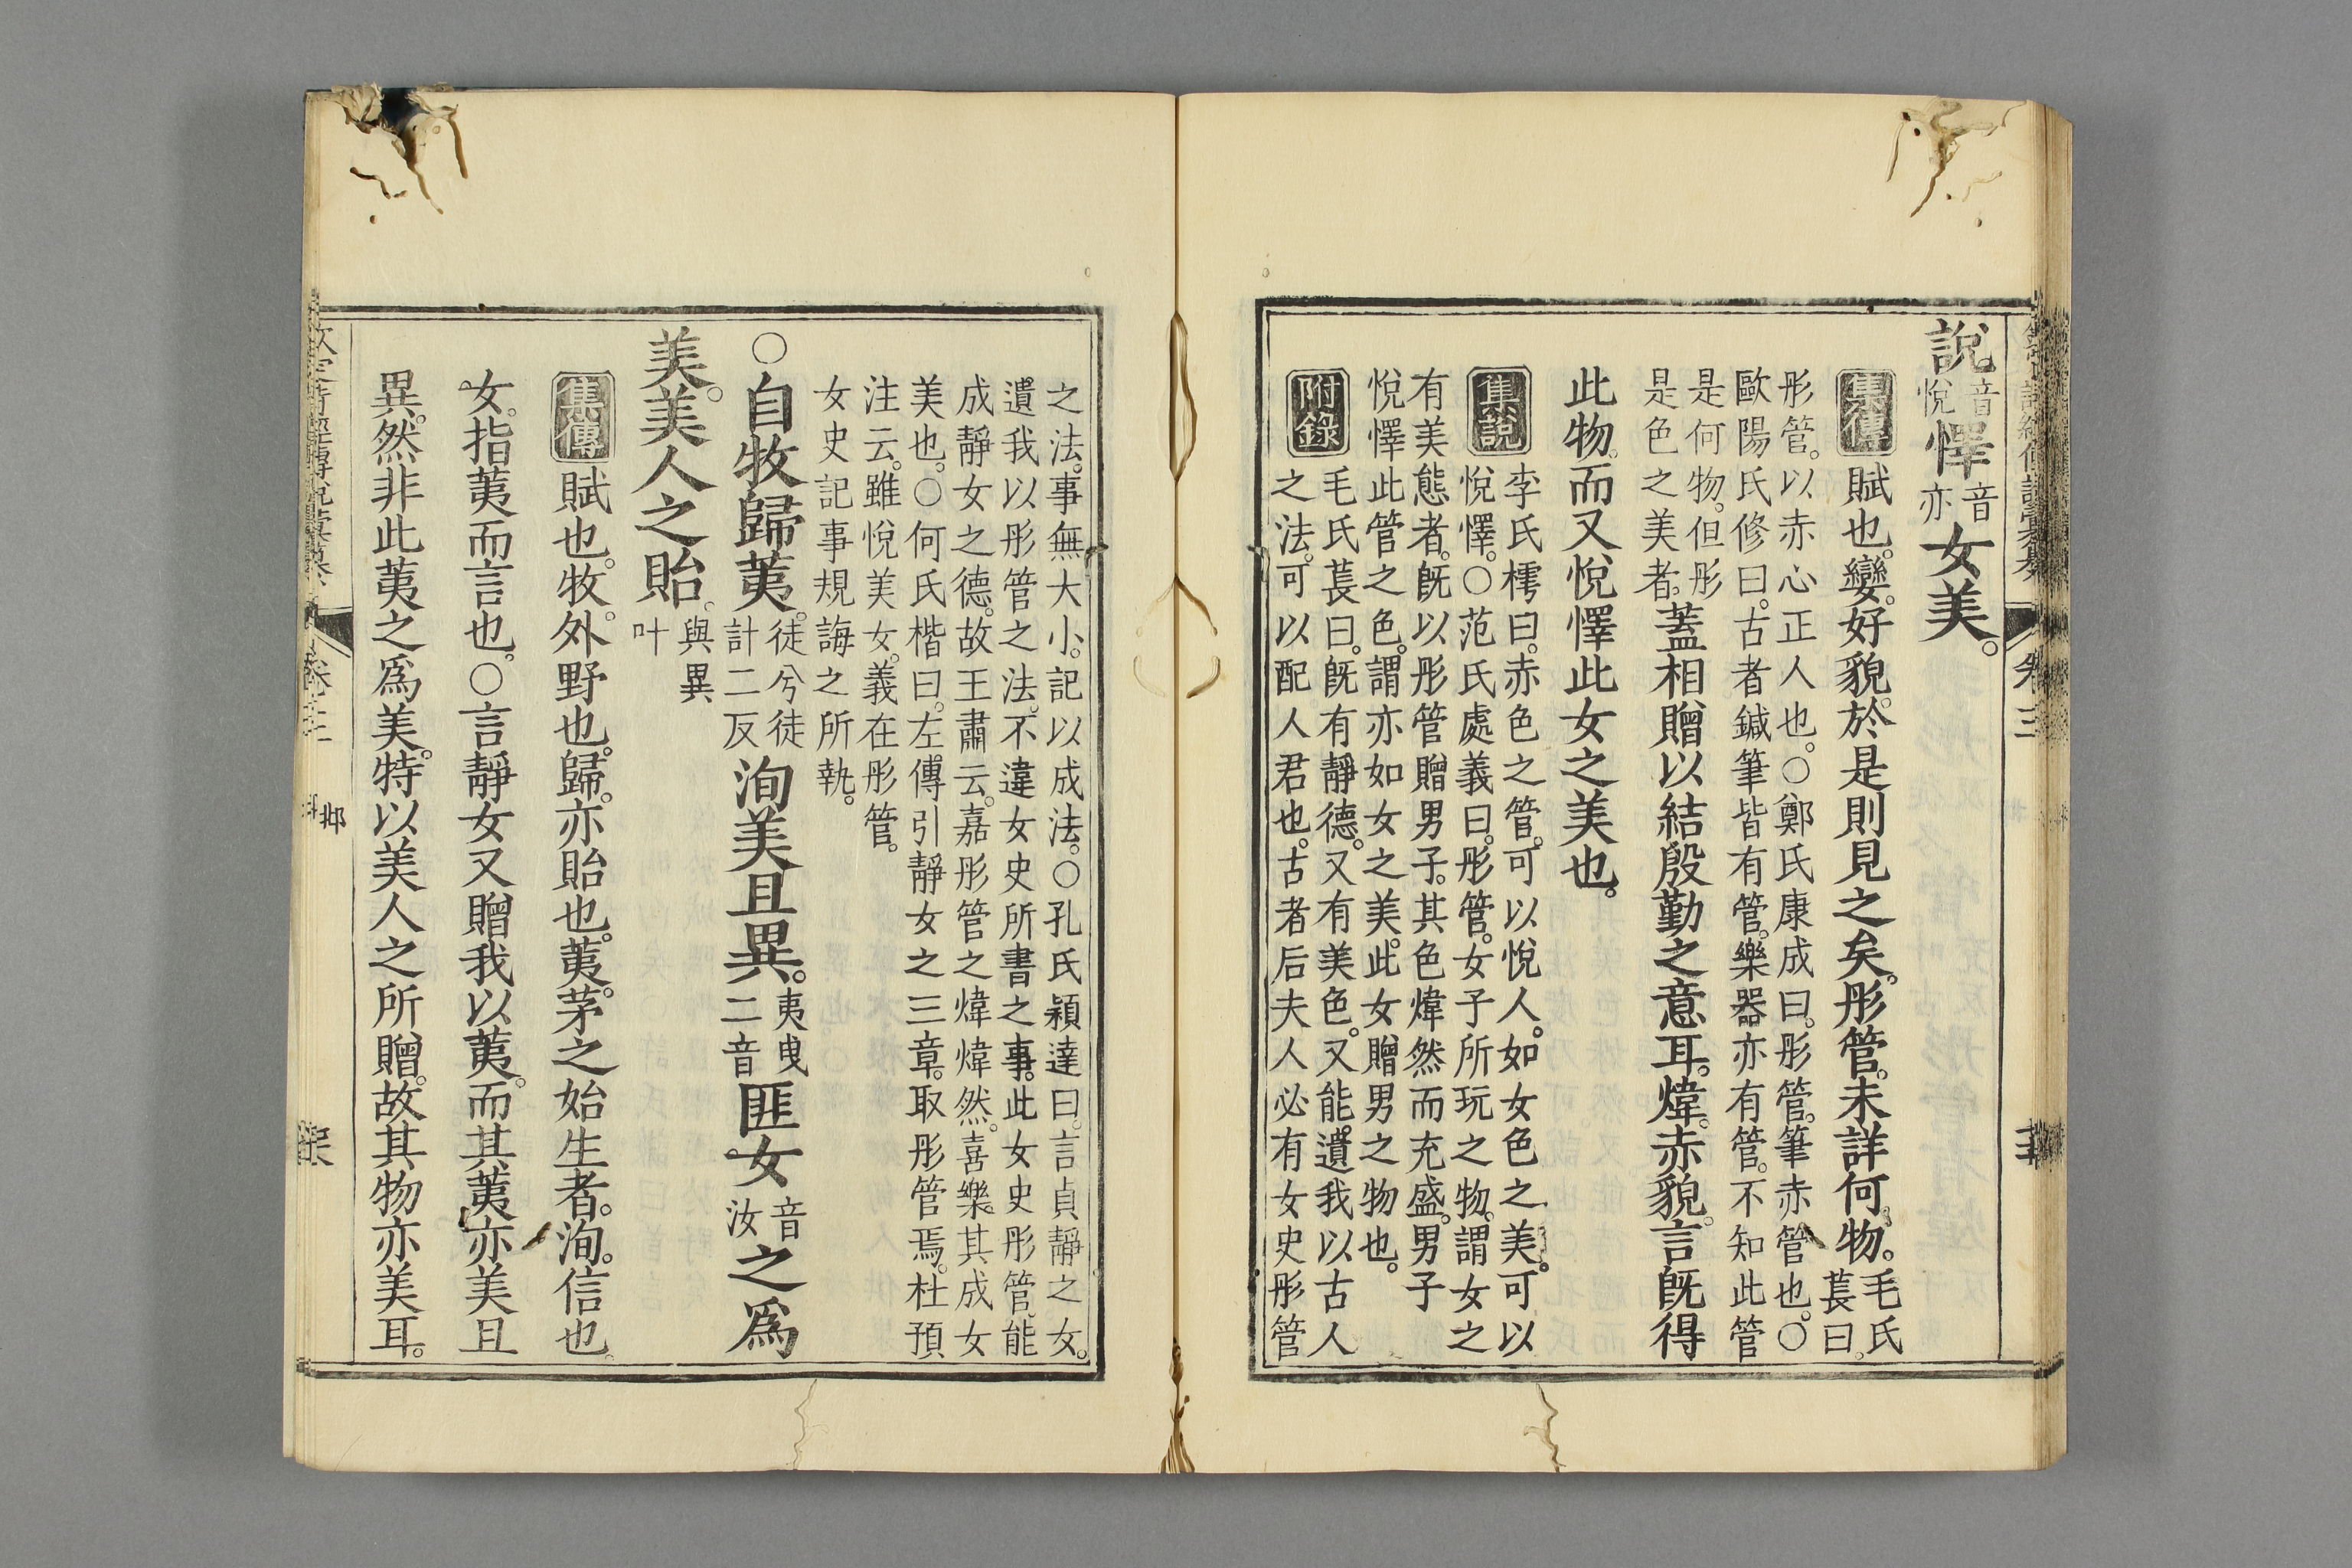 說音悅懌音亦女美。
集傳 賦也。孌。好貌。於是則見之矣。彤管。未詳何物。毛氏萇曰。
彤管。以赤心正人也。○鄭氏康成曰。彤管。筆赤管也。○
歐陽氏修曰。古者鍼筆皆有管。樂器亦有管。不知此管
是何物。但彤
是色之美者。蓋相贈以結殷勤之意耳。煒。赤貌。言旣得
此物。而又悅懌此女之美也。
集說 李氏樗曰。赤色之管。可以悅人。如女色之美。可以
悅懌。○范氏處義曰。彤管。女子所玩之物。謂女之
有美態者。旣以彤管贈男子。其色煒然而充盛。男子
悅懌此管之色。謂亦如女之美。此女贈男之物也。
附錄 毛氏萇曰。旣有靜德。又有美色。又能遺我以古人
之法。可以配人君也。古者后夫人必有女史彤管
卷三
之法。事無大小。記以成法。○孔氏穎達曰。言貞靜之女。
遺我以彤管之法。不違女史所書之事。此女史彤管能
成靜女之德。故王肅云。嘉彤管之煒煒然。喜樂其成女
美也。○何氏楷曰。左傳引靜女之三章。取彤管焉。杜預
注云。雖悅美女。義在彤管。
女史記事規誨之所執。
○自牧歸荑。徒兮徒計二反洵美且異。夷曳二音匪女音汝之爲
美。美人之貽。與異叶
集傳 賦也。牧。外野也。歸。亦貽也。荑。茅之始生者。洵。信也。
女。指荑而言也。○言靜女又贈我以荑。而其荑亦美且
異。然非此荑之爲美。特以美人之所贈。故其物亦美耳。
卷三
邶